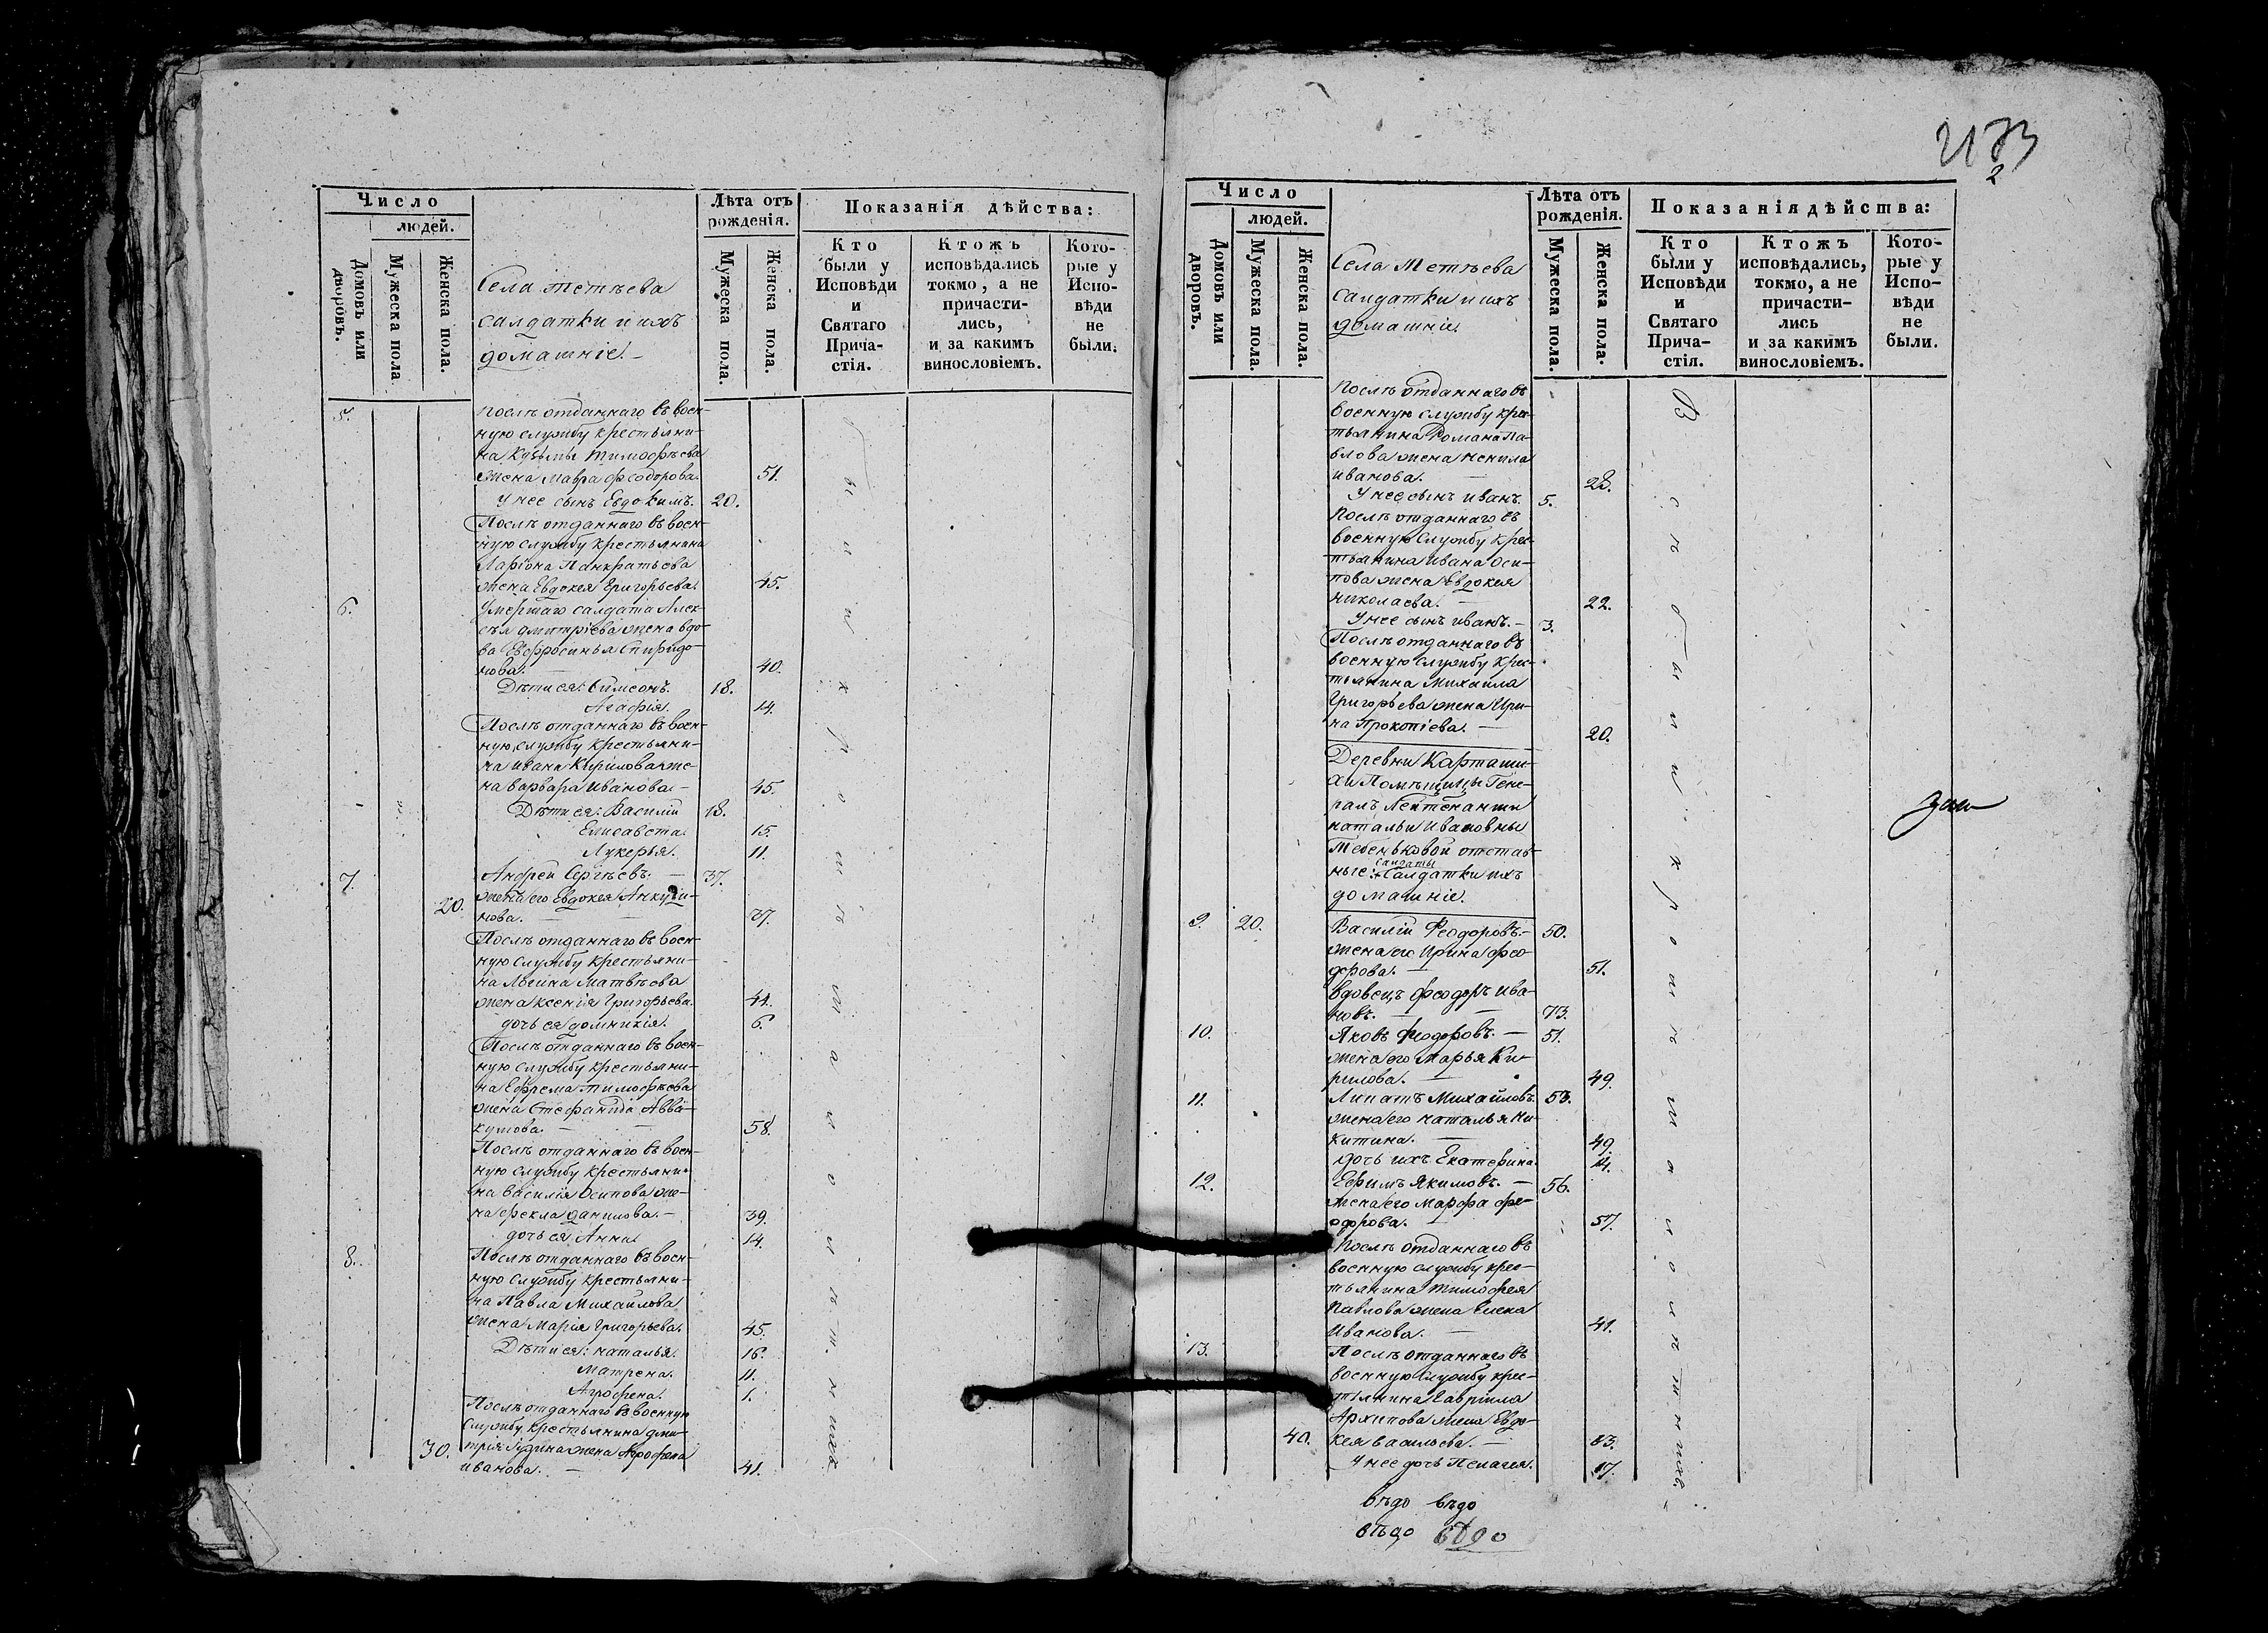 Число
людей.
Домовъ или дворовъ.
Мужеска пола
Женска пола.
Села Тетѣева
салдатки и ихъ
домашніе. —
Лѣта отъ рожденія.
Мужеска пола.
Женска пола.
Показанія дѣйства:
Кто были у Исповѣди и Святаго Прича-стія.
Ктожъ исповѣдались токмо, а не причасти-лись, и за какимъ винословіемъ.
Кото-рые у Испо-вѣди не были.
5. Послѣ отданнаго въ воен-
ную службу крестьяни-
на Кузьмы Тимофѣева
жена Мавра Феодорова. 51.
У нее сынъ Евдокимъ. 20.
Послѣ отданнаго въ воен-
ную службу крестьянина
Ларіона Панкратьева
жена Евдокея Григорьева. 45.
6. Умершаго салдата Алек-
сѣя Дмитріева жена вдо-
ва Евфросинья Спиридо-
нова. — 40.
Дѣти ея: Симеонъ. 18.
Агафія. 14.
Послѣ отданнаго въ воен-
ную службу крестьяни-
на Ивана Кирилова же-
на Варвара Иванова — 45.
Дѣти ея: Василій 18.
Елисавета. 15.
Лукерья. 11.
7. Андрей Сергѣевъ. — 37.
жена его Евдокея Анкуди-
20. нова. — 37.
Послѣ отданнаго въ воен-
ную службу крестьяни-
на Логина Матвѣева
жена Ксенія Григорьева. 44.
дочь ея Домникія. 6.
Послѣ отданнаго въ воен-
ную службу крестьяни-
на Ефрема Тимофѣева
жена Стефанида Авва-
кумова. — 58.
Послѣ отданнаго въ воен-
ную службу крестьяни-
на Василія Осипова же-
на Фекла Данилова. — 39.
дочь ея Анна. 14.
8. Послѣ отданнаго въ воен-
ную службу крестьяни-
на Павла Михайлова
жена Марія Григорьева. 45.
Дѣти ея: Наталья. 16.
Матрена. 11.
Агрофена. 1.
Послѣ отданнаго въ военную
службу крестьянина Дми-
30. трія жена Агрофена
Иванова. — 41.
2
Число
людей.
Домовъ или дворовъ.
Мужеска пола.
Женска пола.
Села Тетѣева
салдатки и ихъ
домашніе.
Лѣта отъ рожденія.
Мужеска пола.
Женска пола.
Показанія дѣйства:
Кто были у Исповѣди и Святаго Прича-стія.
Ктожъ исповѣдались, токмо, а не причасти-лись и за какимъ винословіемъ.
Кото-рые у Испо-вѣди не были.
Послѣ отданнаго въ
военную службу крес-
тьянина Романа Па-
влова жена Ненила
Иванова. 28.
У нее сынъ Иванъ. 5.
Послѣ отданнаго въ
военную службу крес-
тьянина Ивана Оси-
пова жена Евдокея
Николаева. — 22.
У нее сынъ Иванъ. — 3.
Послѣ отданнаго въ
военную службу крес-
тьянина Михаила
Григорьева жена Ири-
на Прокопіева. — 20.
Деревни Карташи-
хи Помѣщицы Гене-
ралъ Лейтенанши
Натальи Ивановны
Тебеньковой отстав-
салдаты
ные: + Салдатки ихъ
домашніе.
9. 20. Василій Феодоровъ. — 50.
жена его Ирина Фео-
дорова. — 51.
вдовецъ Феодоръ Ива-
новъ. — 73.
10. Яковъ Феодоровъ. — 51.
жена его Марья Ки-
рилова. — 49.
11. Липатъ Михайловъ. 53.
жена его Наталья Ни-
китина. — 49.
дочь ихъ Екатерина. 14.
12. Ефимъ Якимовъ. — 56.
жена его Марфа Фе-
одорова. — 57.
Послѣ отданнаго въ
военную службу крес-
тьянина Тимофея
Павлова жена Елена
Иванова. — 41.
13. Послѣ отданнаго въ
военную службу крес-
тьянина Гавріила
Архипова жена Евдо-
40. кея Васильева. — 83.
У нее дочь Пелагея. 17.
вѣдо вѣдо
вѣдо вѣдо